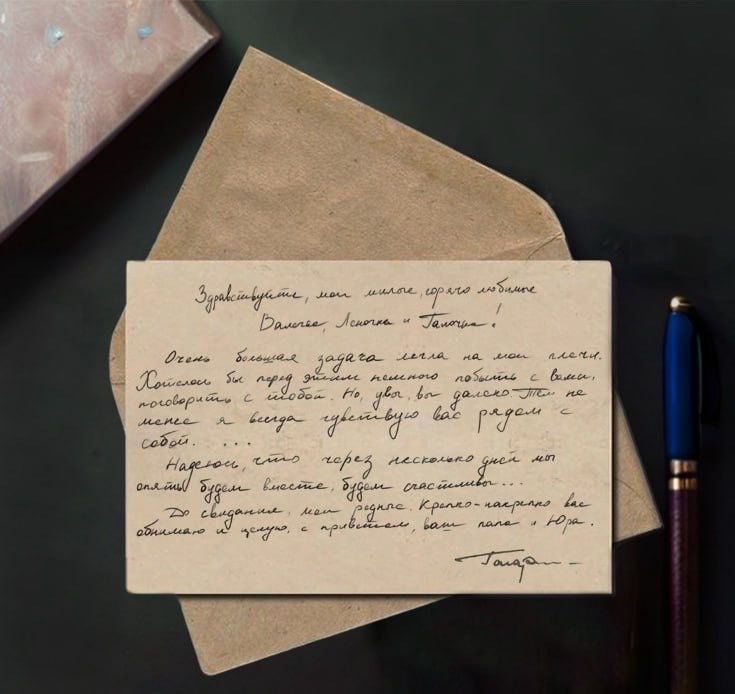 Здравствуйте, мои милые, горячо любимые
Валечка, Леночка и Галочка!
Очень большая задача легла на мои плечи.
Хотелось бы перед этим немного побыть с вами,
поговорить с тобой. Но, увы, вы далеко. Тем не
менее я всегда чувствую вас рядом с
собой. ...
Надеюсь, что через несколько дней мы
опять будем вместе, будем счастливы...
До свидания, мои родные. Крепко-накрепко вас
обнимаю и целую, с приветом, ваш папа и Юра.
Гагарин